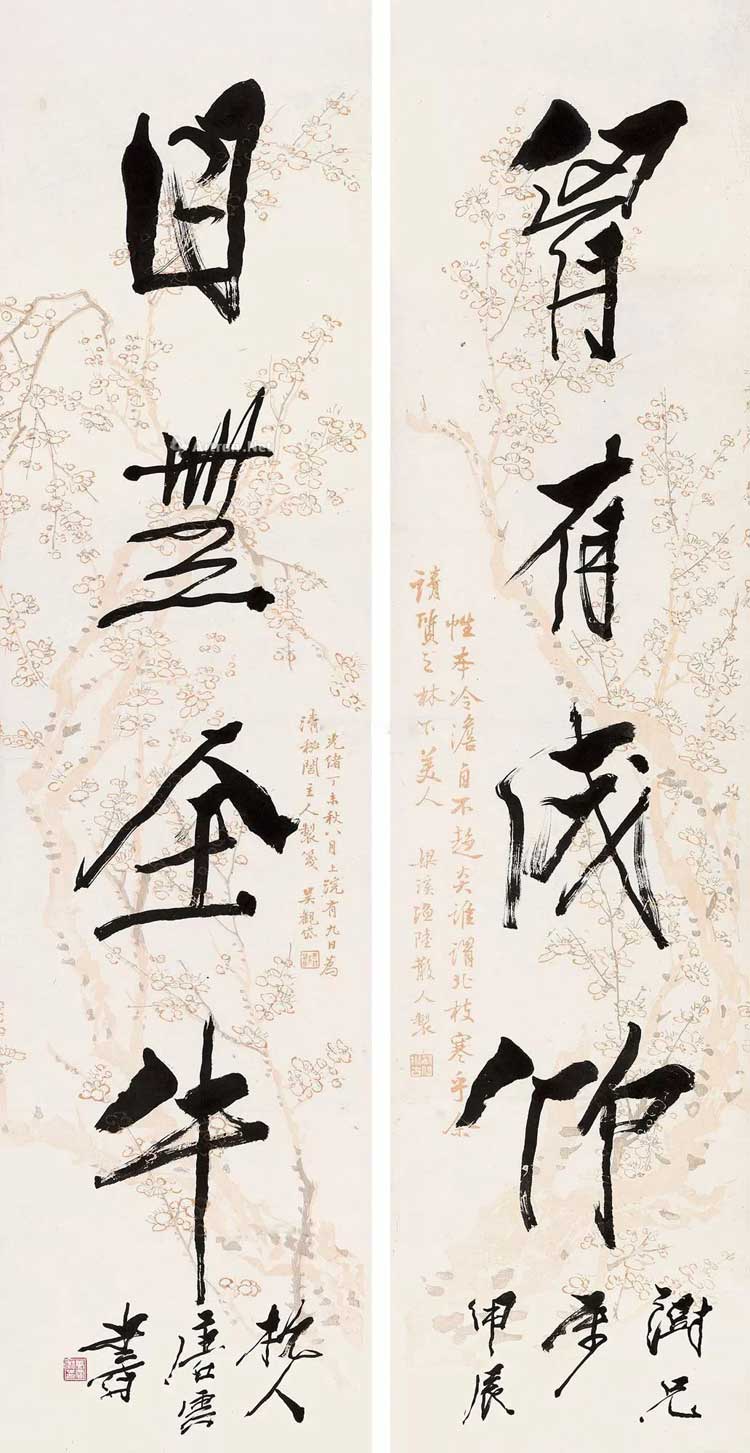 胷有成竹
澍兄
屬
甲辰
目無全牛
杭人
唐雲
書
性本冷澹自不趨炎誰謂北枝寒乎
請質之林下美人 梁溪漁陸散人製
光緒丁未秋八月上浣有九日為
清秘閣主人製箋 吳觀岱